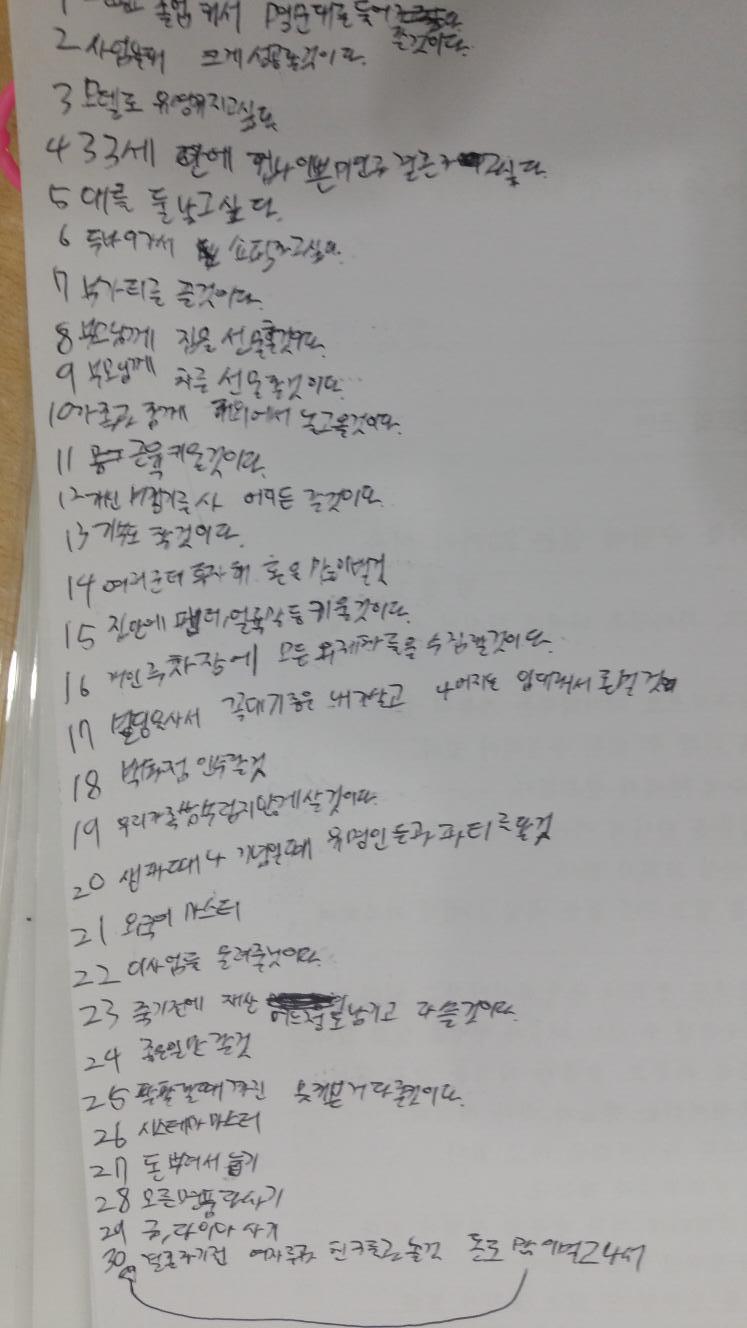 졸업해서 명문대를 들어
갈것이다.
2 사업을해 크게 성공할것이다.
3 모델로 유명해지고싶다
4 33세 안에 이쁜 결혼하고싶다.
5 애를 둘 낳고싶다.
6 두바이가서 쇼핑하고싶다.
7 부가티를 끌것이다.
8 부모님께 집을 선물할것이다.
9 부모님께 차를 선물할것이다.
10 가족과 함께 해외에서 놀고올것이다.
11 근육 키울것이다.
12 개인 비행기를 사 어디든 갈것이다.
13 기부도 할것이다.
14 여러군데 투자해 돈을 많이벌것
15 집안에 팬더, 얼룩말 등 키울것이다.
16 개인 주차장에 모든 외제차들을 수집할것이다.
17 빌딩을사서 꼭대기층은 내가살고 나머지는 임대해서 돈벌것
18 백화점 인수할것
19 우리가족 남부럽지않게 살것이다.
20 생파때나 기념일때 유명인들과 파티를할것
21 외국어 마스터
22 내사업을 물려줄것이다.
23 죽기전에 재산 어느정도 남기고 다 쓸것이다.
24 좋은일만 할것
25 팔팔할때 다할것이다.
26 시스테마 마스터
27 돈 부어서 놀기
28 모든명품 다사기
29 금, 다이아 사기
30 결혼하기전 여자루 놀것 돈도 많이벌고나서